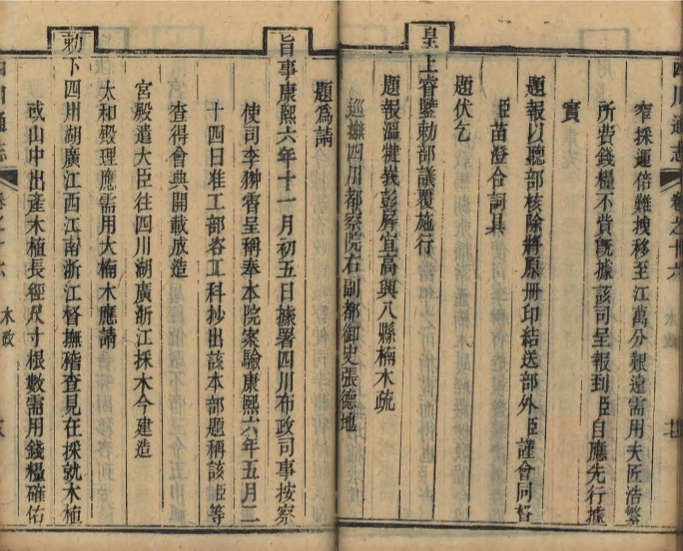 四川通志 卷之十六 木政
窄採運倍難拽移至江萬分艱遠需用夫匠浩繁
所費錢糧不貲旣據該司呈報到臣自應先行據
實
題報以聽部核除將原冊印結送部外臣謹會同督
臣苗澄合詞具
題伏乞
皇上睿鑒勅部議覆施行
題報溫犍峩彭屏宜高興八縣楠木疏
巡撫四川都察院右副都御史張德地
題爲請
旨事康熙六年十一月初五日據署四川布政司事按察
使司李翀霄呈稱奉本院案驗康熙六年五月二
十四日准工部咨工科抄出該本部題稱該臣等
查得會典開載成造
宮殿遣大臣往四川湖廣浙江採木今建造
太和殿理應需用大楠木應請
勅下四川湖廣江西江南浙江督撫稽查見在採就木植
或山中出產木植長徑尺寸根數需用錢糧確佑
四川通志 卷之十六 木政